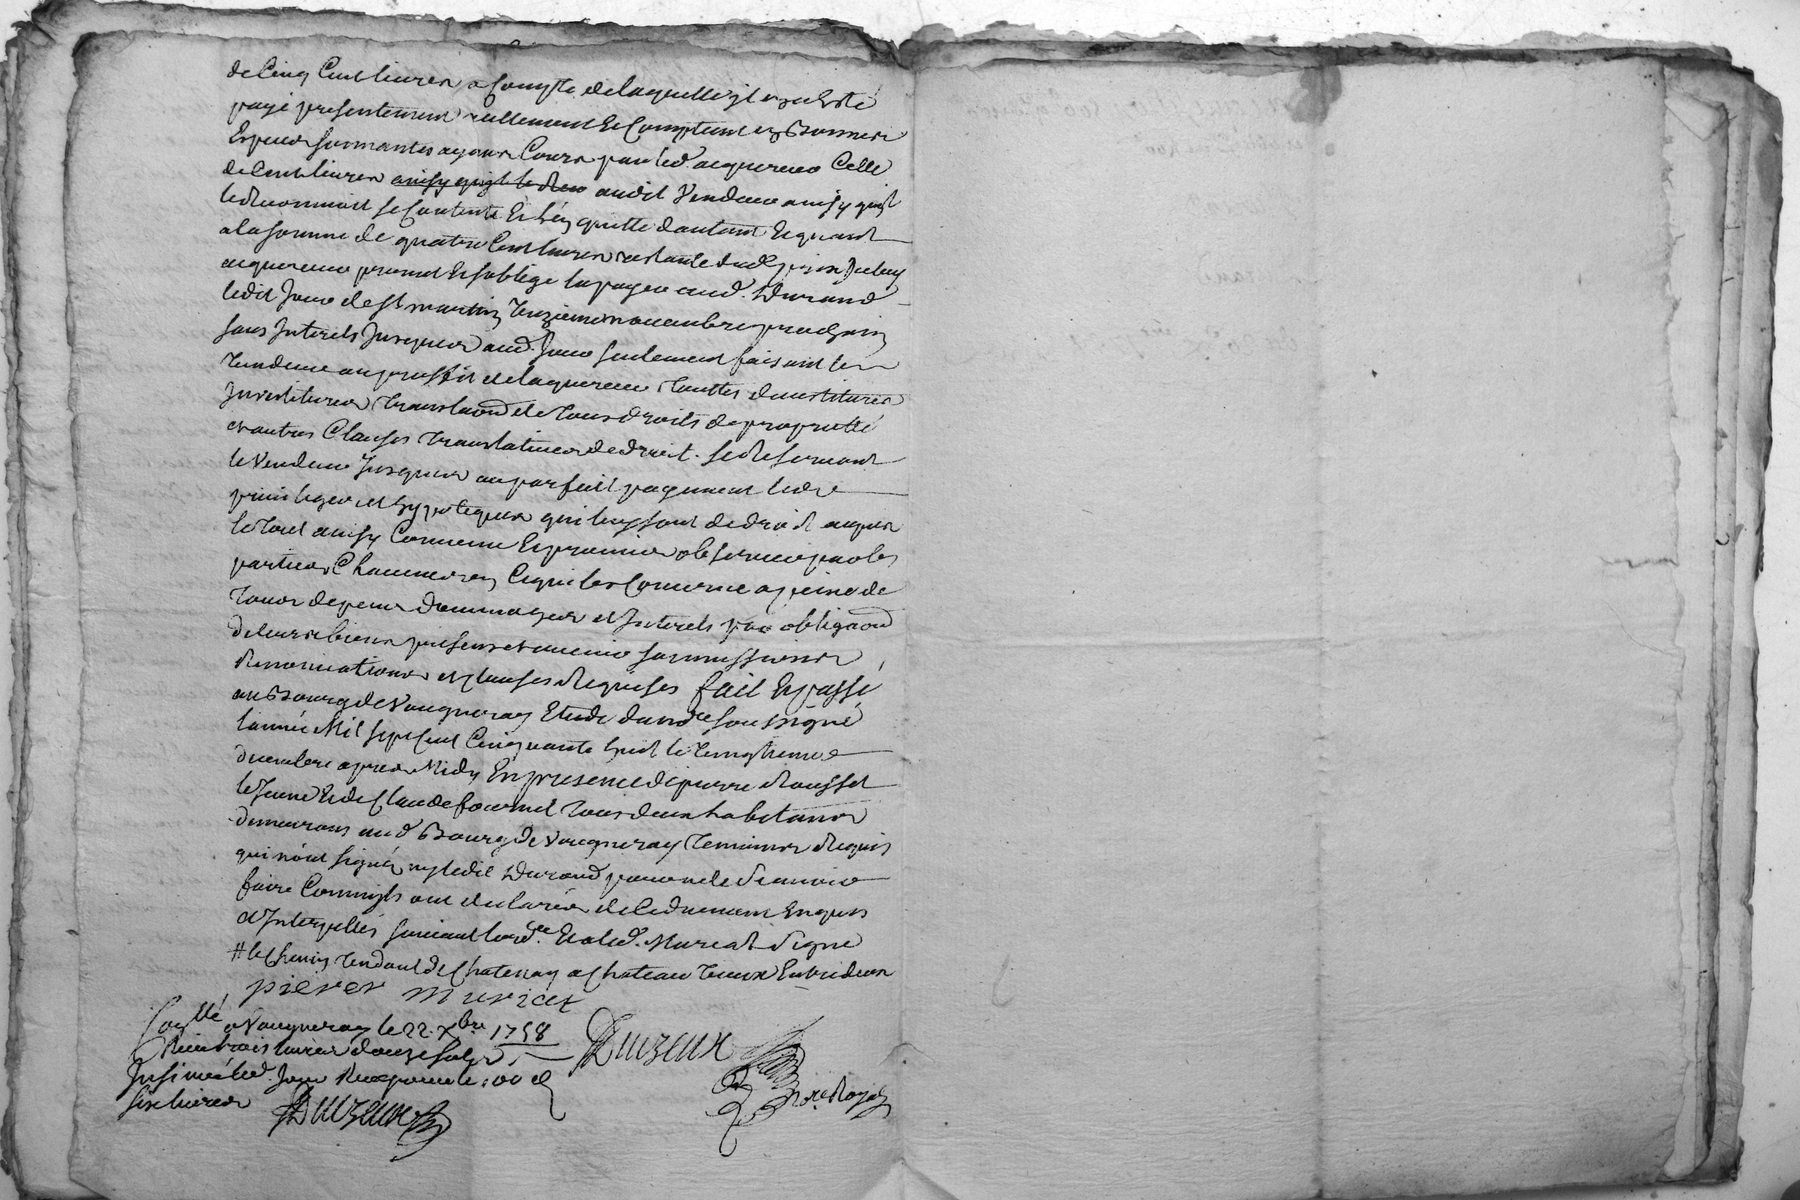 de Cinq Cent livres a Compte de laquelle il en a Esté
payé presentement reellement Et Comptant en Bonnes
Especes sonnantes ayans Cours par led. acquereur Celle
de Cent livres audit Vendeur ainsy quil
le Reconnoit se Contente Et L'en quitte dautant Et quant
a la somme de quatre Cent livres restante dud. prix Jceluy
acquereur promet Et s'oblige la payer aud. Durand
ledit Jour de St martin Unzieme novembre prochain
sans Interets Jusques aud. Jour seulement faisant le
Vendeur au proffit de l'acquereur Touttes devestitures
Jnvestitures Translaōn de Tous droits de proprietté
et autres Clauses Translatives de droit. se Reservant
le Vendeur Jusques au parfait payement les
privileges et hypoteques qui luy sont de droit acquis
le Tout ainsy Convenu Et promis observer par les
parties Chacune en Ce qui les Concerne a peine de
Tous depens dommages et Jnterets par obligaōn
de leurs biens presens et avenir soumissions
Renonciations et Clauses Requises fait Et passé
au Bourg de Vaugneray Etude du nore soussigné
l'année Mil sept Cent Cinquante huit le
decembre apres Midy En presence de pierre Rousset
le Jeune Et de Claude fournel Tous deux habitans
demeurans aud. Bourg de Vaugneray Temoins Requis
qui n'ont signé, ny ledit Durand pour ne le scavoir
faire Comme ils ont declarés de Ce duement Enquis
et Interpellés suivant l'ord.ce Et a led. Muricat signé
# le chemin Tendant de Chatenay a Chateau Vieux Entre deux
pierer muricat
Con.llé a Vaugneray le 22. Xbre 1758
Reçu trois livres douze sols
Duzeux
Jnsinué led. Jour Reçu pour le 100e d.
six livres
Duzeux
nre Royal